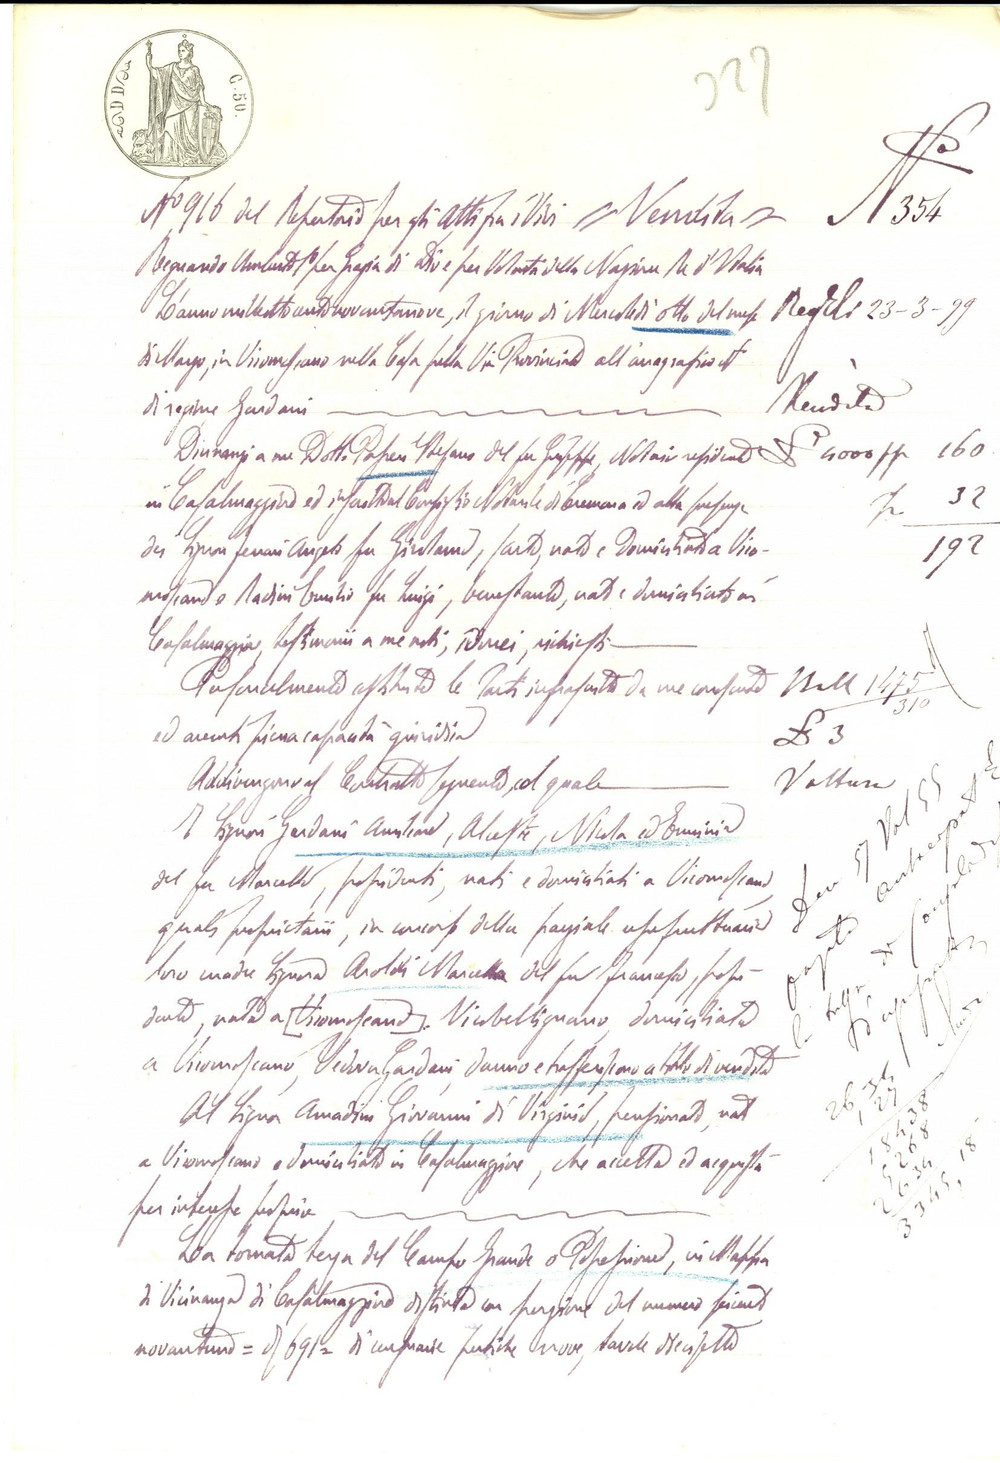 C. 50.
N° 354
N° 916 del Repertorio per gli Atti fra i Vivi = Vendita =
Regnando Umberto I° per Grazia di Dio e per Volontà della Nazione Re d'Italia
L'anno mille ottocento novantanove, il giorno di Mercoledì otto del mese
di Marzo, in Vicomoscano nella Casa sulla Via Provinciale all'anagrafico
di ragione Gardani
Dinnanzi a me Dott. Stefano del fu Giuseppe, Notaio residente
in Casalmaggiore ed inscritto al Consiglio Notarile di Cremona ed alla presenza
dei Signori Ferrari Angelo fu Girolamo, sarto, nato e domiciliato a Vico-
moscano e Radini Emilio fu Luigi, benestante, nato e domiciliato in
Casalmaggiore, testimonii a me noti, idonei, richiesti
Personalmente costituite le Parti infrascritte da me conosciute
ed aventi piena capacità giuridica
Addivengono al Contratto seguente, col quale
I Signori Gardani Amilcare, Alceste, Nicola ed Erminia
del fu Marcello, possidenti, nati e domiciliati a Vicomoscano,
quali proprietarii, in concorso della parziale usufruttuaria
loro madre Signora Aroldi Marcella del fu Francesco, possi-
dente, nata a [Vicomoscano]. Vicobellignano, domiciliata
a Vicomoscano, Vedova Gardani, danno e trasferiscono a titolo di vendita
Al Signor Amadini Giovanni di Virginio, pensionato, nato
a Vicomoscano e domiciliato in Casalmaggiore, che accetta ed acquista
per interesse proprio
La tornata terza del Campo Grande o Possessione, in Mappa
di Vicinanza di Casalmaggiore distinta con porzione del numero seicento
novantuno = 691 = di censuarie pertiche nove, tavole diciasette
23-3-99
Vendita
4000 160
32
192
1475
310
£ 3
Voltura
Vol 55
26,34
1,27
18438
5268
2634
3345,18